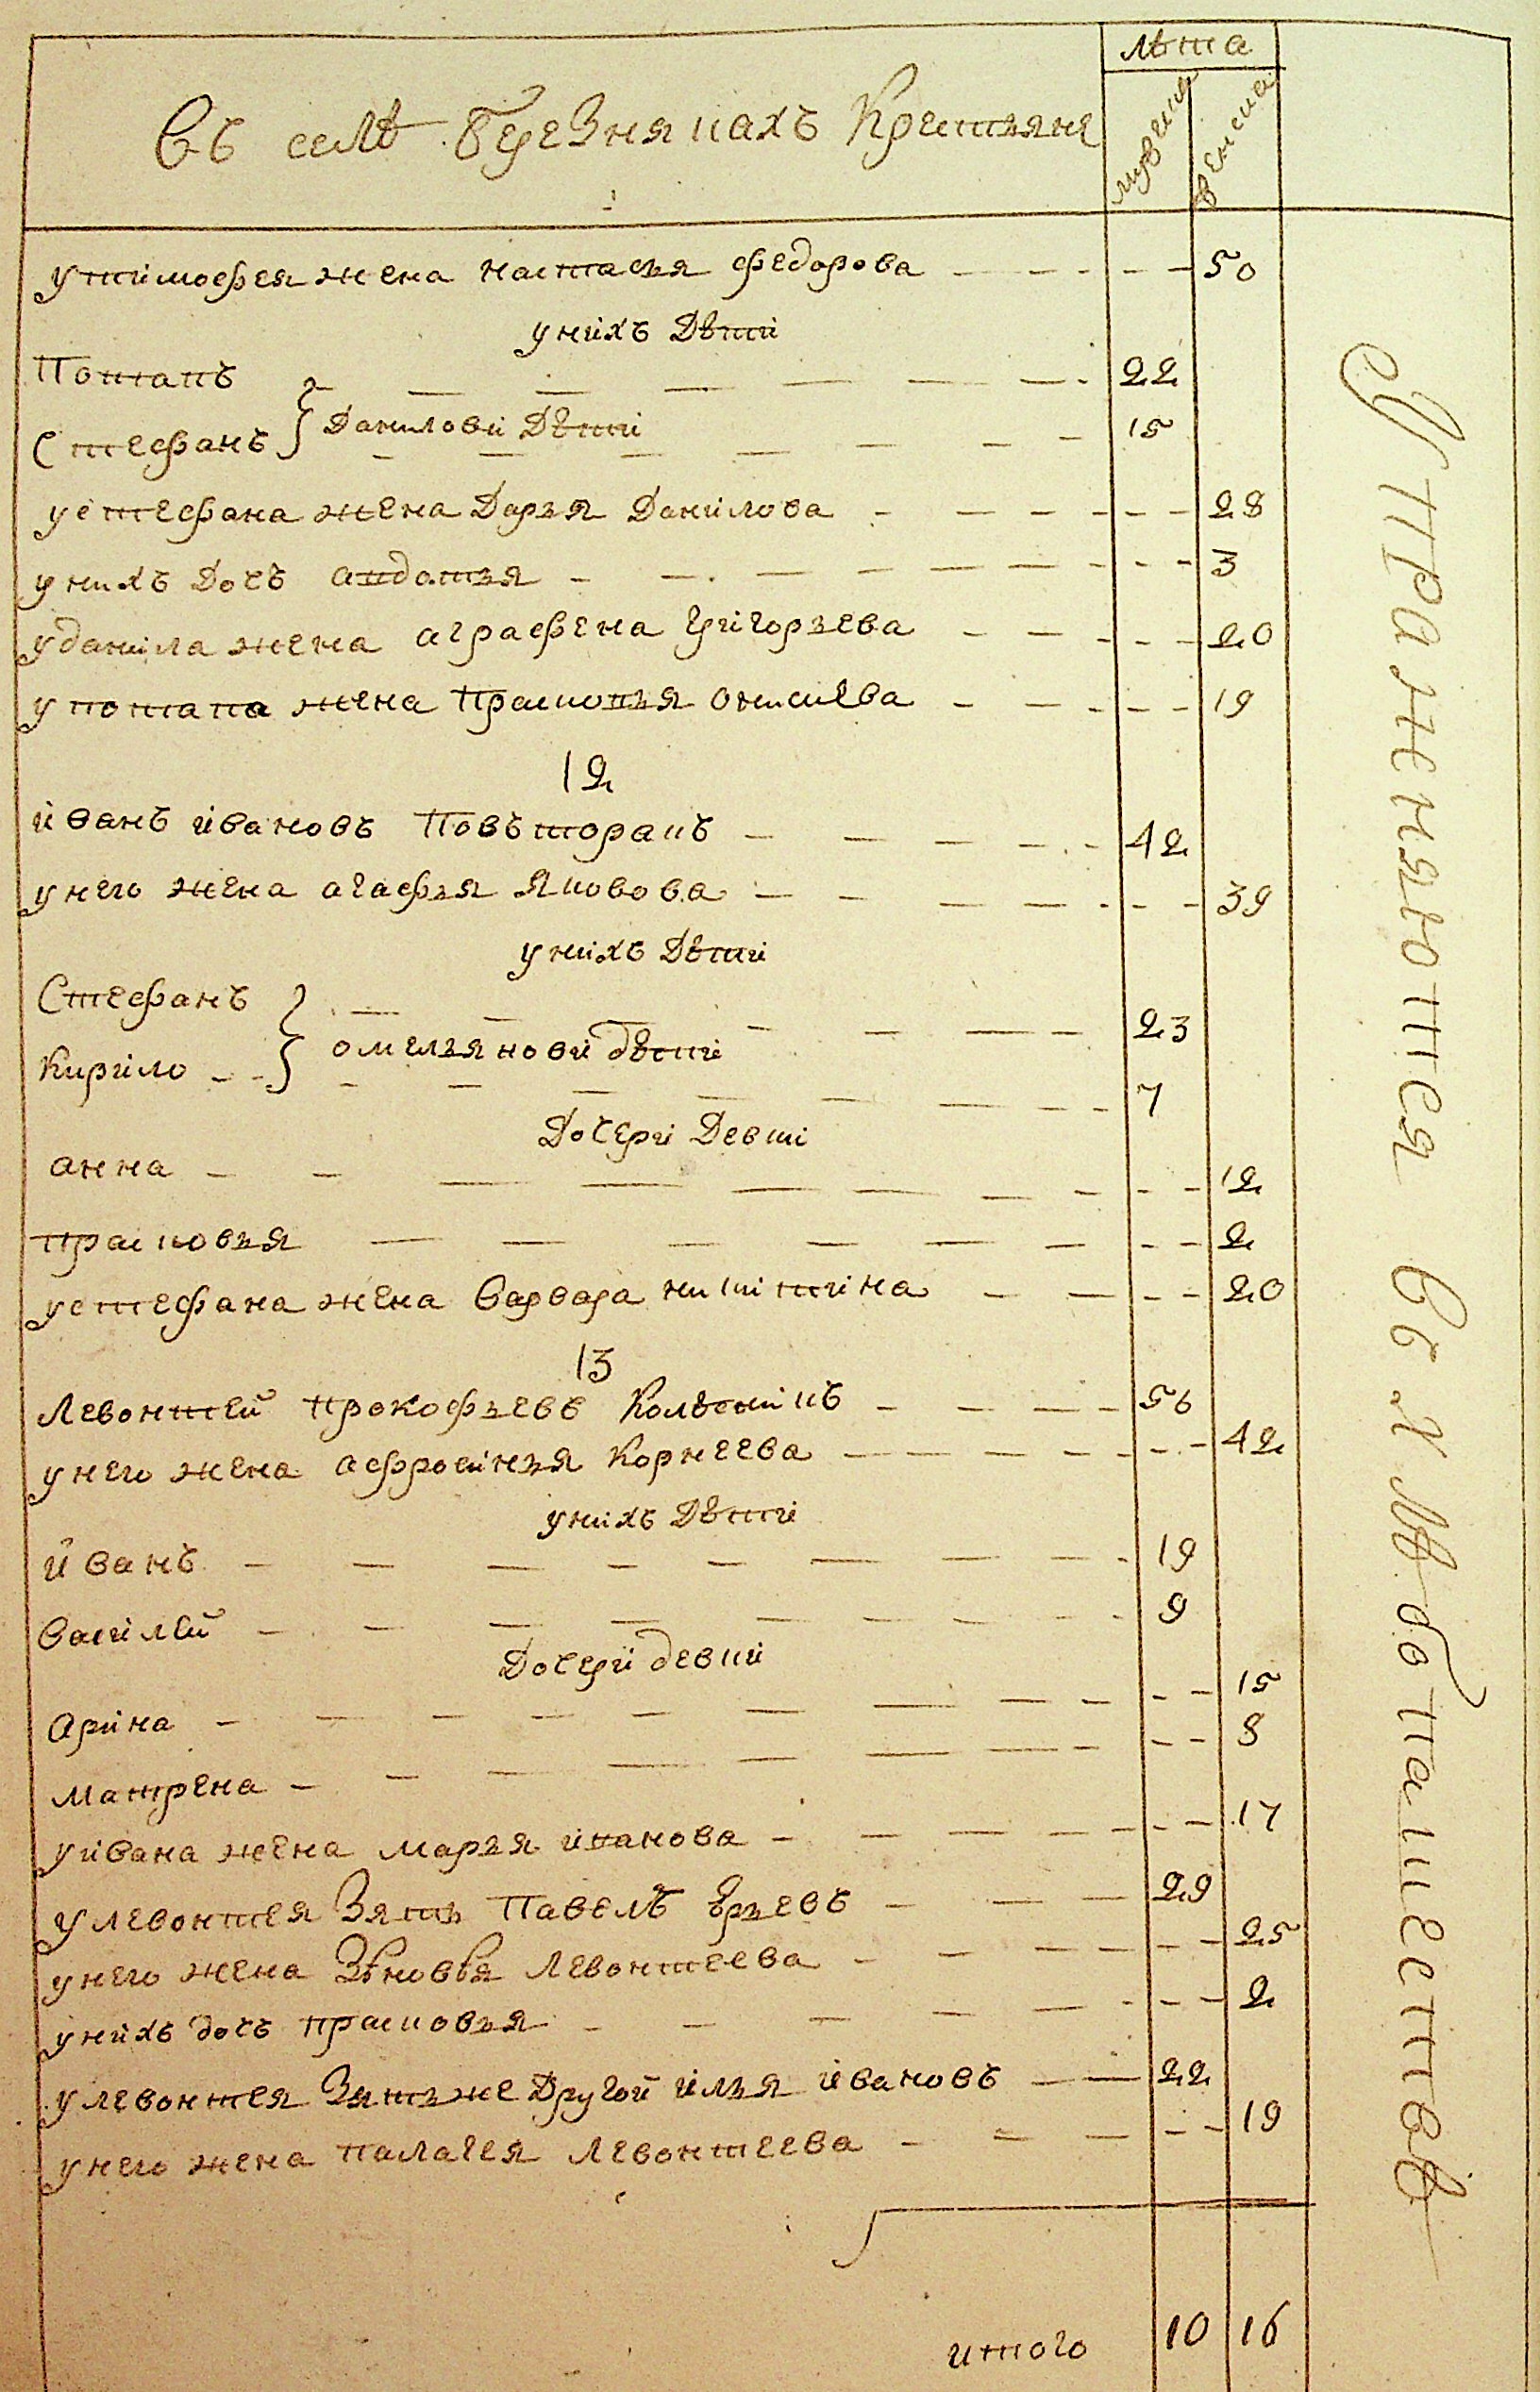 лѣта
Въ селѣ Березнякахъ Крестьяне
мужеска
женска
у тимофея жена настасья федорова — 50
у нихъ Дѣти
Потапъ — 22
Стефанъ } Данилови Дѣти — 15
у стефана жена Дарья Данилова — 28
у нихъ Дочъ авдотья — 3
у данила жена аграфена григорьева — 20
у потапа жена Прасковья онисиева — 19
12
иванъ ивановъ Повъторакъ — 42
у него жена агафья Яковова — 39
у нихъ Дѣти
Стефанъ — 23
Кирило } омельянови дѣти — 7
Дочери Девки
анна — 12
прасковья — 2
у стефана жена варвара никитина — 20
13
Левонтей прокофьевъ Колѣсникъ — 56
у него жена афросинья Корнеева — 42
у нихъ Дѣти
Иванъ — 19
василей — 9
Дочери девки
Арина — 15
Матрена — 8
у ивана жена марья иванова — 17
у левонтея Зять Павелъ юрьевъ — 29
у него жена Зѣновья Левонтеева — 25
у нихъ дочъ прасковья — 2
у левонтея Зять же Другой илья ивановъ — 22
у него жена палагея Левонтеева — 19
итого 10 16
Упражняются въ хлѣбопашествѣ